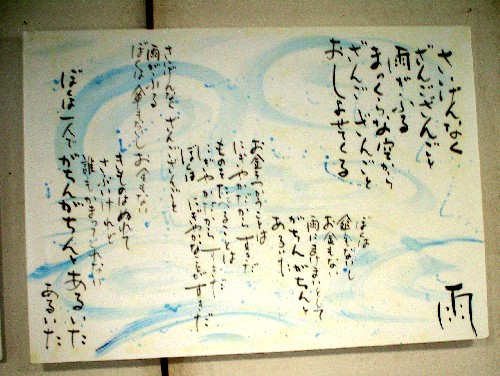 雨
さいげんなく
ざんござんごと
雨がふる
まっくらな空から
ざんござんごと
おしよせてくる
ぼくは
傘もないし
お金もない
雨にまけまいとして
がちんがちんと
あるいた
お金をつかうことは
にぎやかだからすきだ
ものをたべることは
にぎやかだからすきだ
ぼくは にぎやかなことがすきだ
さいげんなく ざんござんごと
雨がふる
ぼくは 傘もないし お金もない
きものはぬれて
さぶいけれど
誰もかまってくれない
ぼくは一人で がちんがちんとあるいた
あるいた